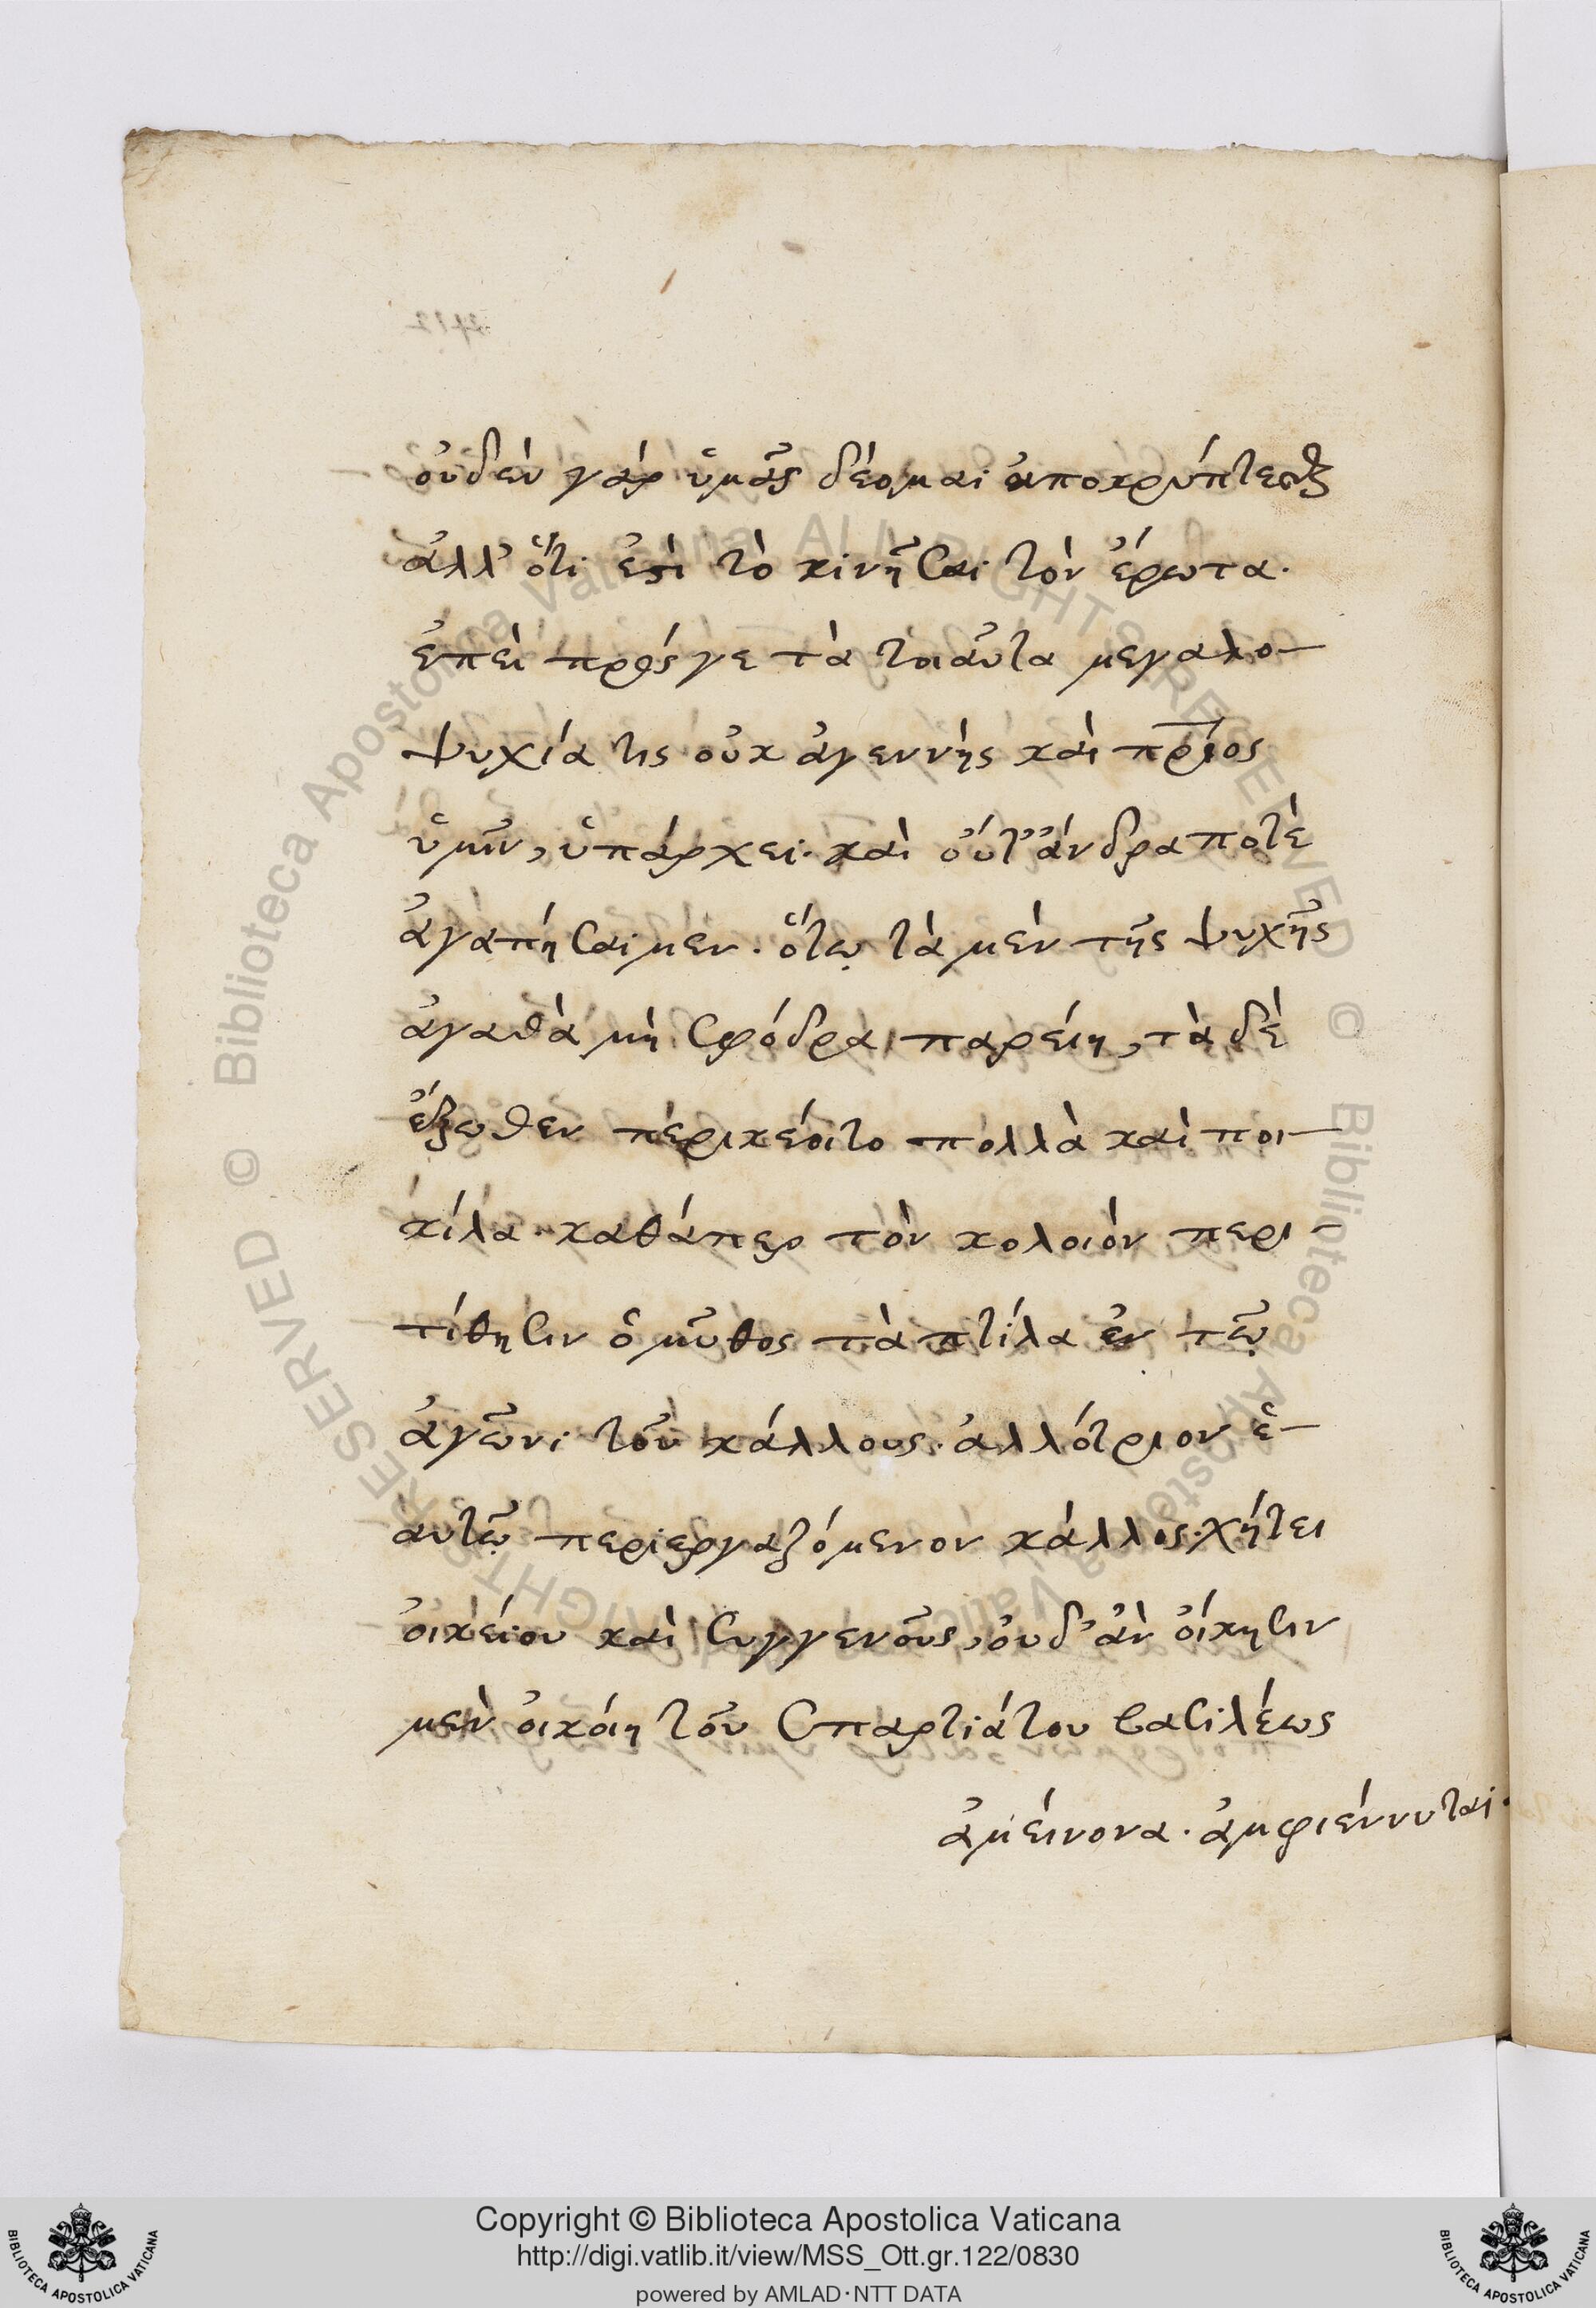 οὐδὲν γὰρ ὑμᾶς δέομαι ἀποκρύπτεσθαι
ἀλλ' ὅτι ἐστὶ τὸ κινῆσαι τὸν ἔρωτα.
ἐπεὶ πρός γε τὰ τοιαῦτα μεγαλο-
ψυχία τις οὐκ ἀγεννὴς καὶ
ὑμῖν, ὑπάρχει. καὶ οὔτ' ἄνδρα ποτὲ
ἀγαπήσαιμεν. ὅτῳ τὰ μὲν τῆς ψυχῆς
ἀγαθὰ μὴ σφόδρα παρείη, τὰ δὲ
ἔξωθεν περικέοιτο πολλὰ καὶ ποι-
κίλα. καθάπερ τὸν κολοιὸν περι-
τίθησιν ὁ μῦθος τὰ πτίλα ἐν τῷ
ἀγῶνι τοῦ κάλλους. ἀλλότριον ἑ-
αυτῷ περιεργαζόμενον κάλλος. χήτει
οἰκείου καὶ συγγενοῦς, οὐδ' ἂν οἴκησιν
μὲν οἰκοίη τοῦ Σπαρτιάτου βασιλέως
ἀμείνονα. ἀμφιέννυται.
© Biblioteca Apostolica Vaticana ALL RIGHTS RESERVED © Biblioteca Apostolica Vaticana ALL RIGHTS RESERVED
BIBLIOTECA APOSTOLICA VATICANA
Copyright © Biblioteca Apostolica Vaticana
http://digi.vatlib.it/view/MSS_Ott.gr.122/0830
powered by AMLAD·NTT DATA
BIBLIOTECA APOSTOLICA VATICANA